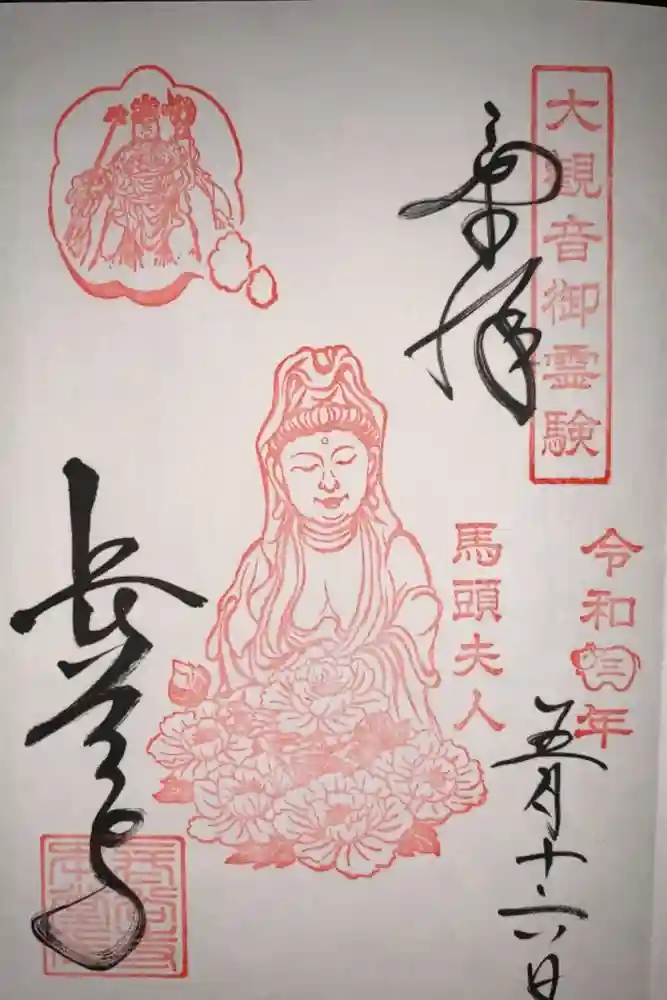 大観音御霊験
奉拝
令和三年
五月十六日
馬頭夫人
長谷寺